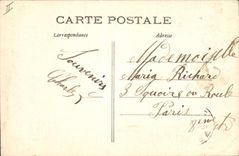 II
CARTE POSTALE
Correspondance
Adresse
Souvenirs
Charles
Mademoiselle
Maria Richard
3 Square ou
Paris